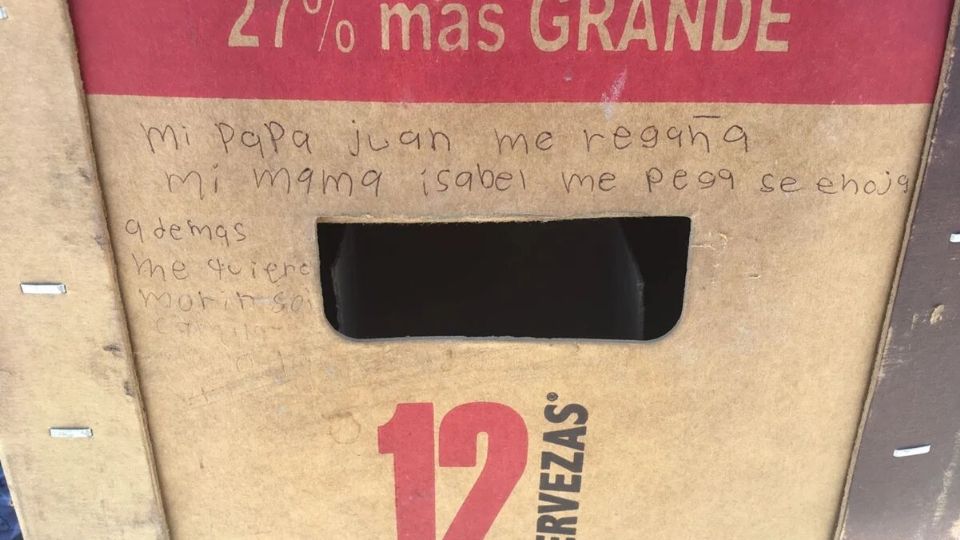 27% más GRANDE
mi papa juan me regaña
mi mama isabel me pega se enoja
ademas
me quiero
morir soi
12
ERVEZAS®